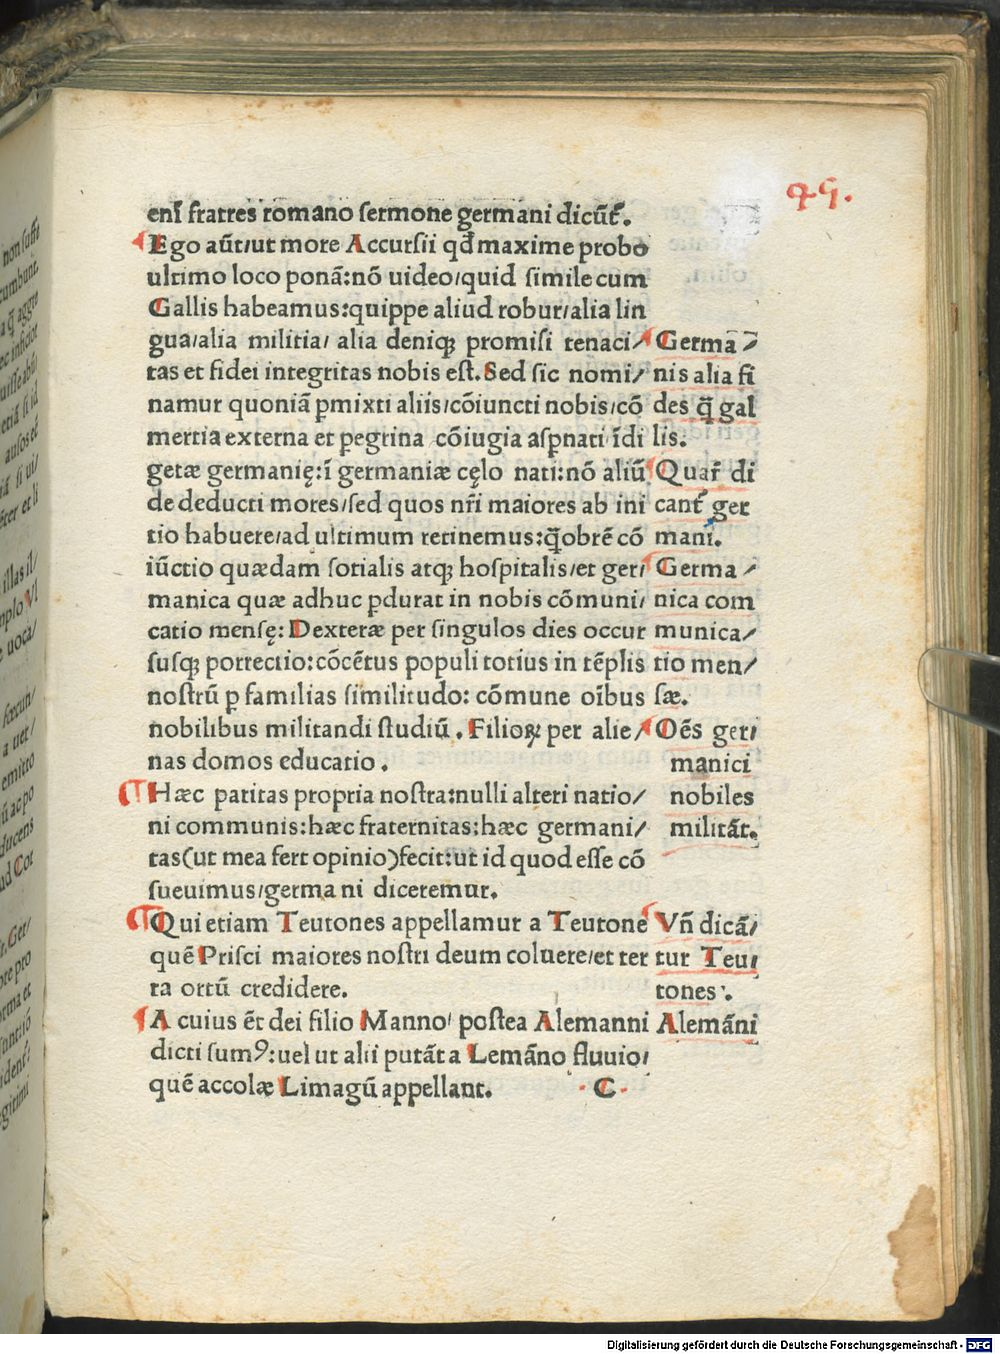 49.
enī fratres romano sermone germani dicūt̄.
Ego aūt/ut more Accursii qđ maxime probo
ultimo loco ponā:nō uideo/quid simile cum
Gallis habeamus:quippe aliud robur/alia lin
gua/alia militia/ alia deniqꝫ promisi tenaci/
tas et fidei integritas nobis est. Sed sic nomi/
namur quoniā ꝑmixti aliis/cōiuncti nobis/cō
mertia externa et pegrina cōiugia aspnati īdi
getæ germanię:ī germaniæ cęlo nati:nō aliū
de deducti mores/sed quos nr̄i maiores ab ini
tio habuere/ad ultimum retinemus:q̄obrē cō
iūctio quædam sotialis atqꝫ hospitalis/et ger/
manica quæ adhuc ꝑdurat in nobis cōmuni/
catio mensę: Dexteræ per singulos dies occur
susqꝫ porrectio:cōcētus populi totius in tēplis
nostrū ꝑ familias similitudo: cōmune oībus
nobilibus militandi studiū. Filioꝝ per alie/
nas domos educatio.
Hæc paritas propria nostra:nulli alteri natio/
ni communis:hæc fraternitas:hæc germani/
tas(ut mea fert opinio)fecit:ut id quod esse cō
sueuimus/germa ni diceremur.
Qui etiam Teutones appellamur a Teutone
quē Prisci maiores nostri deum coluere/et ter
ra ortū credidere.
A cuius ēt dei filio Manno/ postea Alemanni
dicti sumꝰ:uel ut alii putāt a Lemāno fluuio/
quē accolæ Limagū appellant.
C
Germa/
nis alia fi
des q̄ gal
lis.
Quar̄ di
cant̄ ger
mani.
Germa/
nica com
munica/
tio men/
sæ.
Oēs ger/
manici
nobiles
militāt.
Vn̄ dicā/
tur Teu/
tones.
Alemāni
non
illas il/
uocā/
fœcun/
a uer/
emitto
ducens
Get/
Digitalisierung gefördert durch die Deutsche Forschungsgemeinschaft - DFG